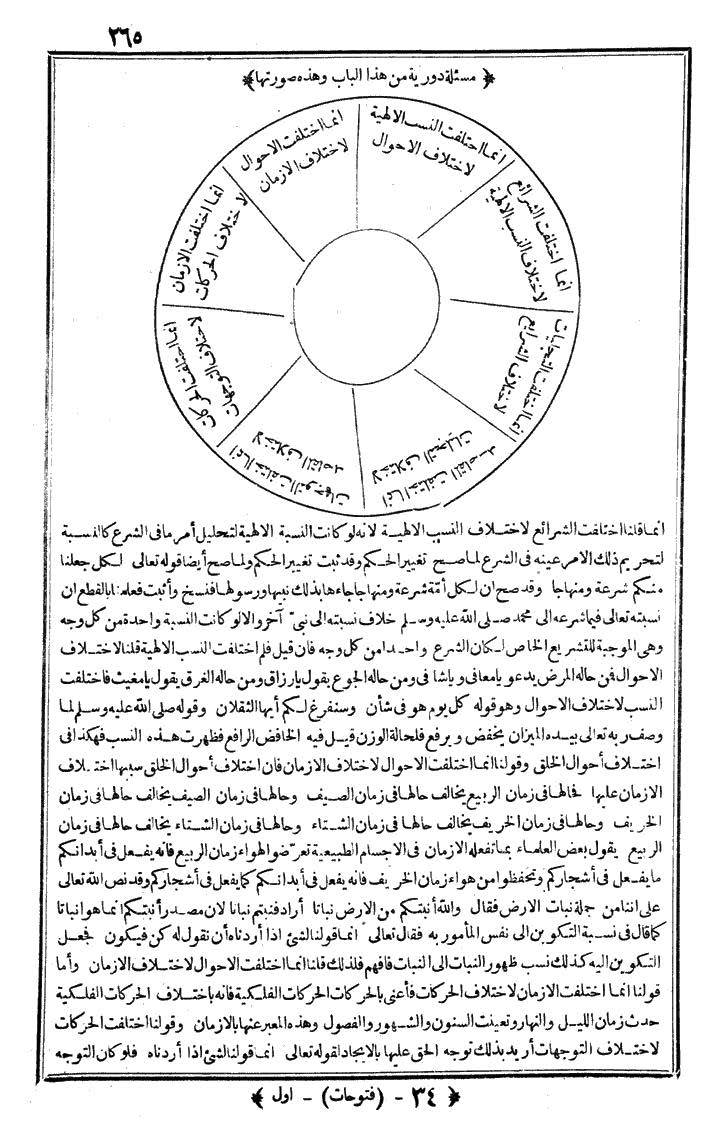 ٢٦٥
﴿ مسئلة دورية من هذا الباب وهذه صورتها ﴾
انما اختلفت النسب الالهية
لاختلاف الاحوال
انما اختلفت الشرائع
لاختلاف النسب الالهية
انما اختلفت التجليات
لاختلاف الشرائع
انما اختلفت المقاصد
لاختلاف التجليات
انما اختلفت التوجهات
لاختلاف المقاصد
انما اختلفت الحركات
لاختلاف التوجهات
انما اختلفت الازمان
لاختلاف الحركات
انما اختلفت الاحوال
لاختلاف الازمان
انما قلنا اختلفت الشرائع لاختلاف النسب الالهية لانه لو كانت النسبة الالهية لتحليل أمر ما فى الشرع كالنسبة
لتحريم ذلك الامر عينه فى الشرع لما صح تغيير الحكم وقد ثبت تغيير الحكم ولما صح أيضا قوله تعالى لكل جعلنا
منكم شرعة ومنهاجا وقد صح ان لكل أمّة شرعة ومنهاجا جاءها بذلك نبيها ورسولها فنسخ وأثبت فعلمنا بالقطع ان
نسبته تعالى فيما شرعه الى محمد صلى الله عليه وسلم خلاف نسبته الى نبىّ آخر والا لو كانت النسبة واحدة من كل وجه
وهى الموجبة للتشريع الخاص لكان الشرع واحدا من كل وجه فان قيل فلم اختلفت النسب الالهية قلنا لاختلاف
الاحوال فمن حاله المرض يدعو يا معافى ويا شافى ومن حاله الجوع يقول يا رزاق ومن حاله الغرق يقول يا مغيث فاختلفت
النسب لاختلاف الاحوال وهو قوله كل يوم هو فى شأن وسنفرغ لكم أيها الثقلان وقوله صلى الله عليه وسلم لما
وصف ربه تعالى بيده الميزان يخفض ويرفع فلحالة الوزن قيل فيه الخافض الرافع فظهرت هذه النسب فهكذا فى
اختلاف أحوال الخلق وقولنا انما اختلفت الاحوال لاختلاف الازمان فان اختلاف أحوال الخلق سببها اختلاف
الازمان عليها فحالها فى زمان الربيع يخالف حالها فى زمان الصيف وحالها فى زمان الصيف يخالف حالها فى زمان
الخريف وحالها فى زمان الخريف يخالف حالها فى زمان الشتاء وحالها فى زمان الشتاء يخالف حالها فى زمان
الربيع يقول بعض العلماء بما تفعله الازمان فى الاجسام الطبيعية تعرّضوا لهواء زمان الربيع فانه يفعل فى أبدانكم
ما يفعل فى أشجاركم وتحفظوا من هواء زمان الخريف فانه يفعل فى أبدانكم كما يفعل فى أشجاركم وقد نص الله تعالى
على اننا من جملة نبات الارض فقال والله أنبتكم من الارض نباتا أراد فنبتم نباتا لان مصدر أنبتكم انما هو انباتا
كما قال فى نسبة التكوين الى نفس المأمور به فقال تعالى انما قولنا لشئ اذا أردناه أن نقول له كن فيكون فجعل
التكوين اليه كذلك نسب ظهور النبات الى النبات فافهم فلذلك قلنا انما اختلفت الاحوال لاختلاف الازمان وأما
قولنا انما اختلفت الازمان لاختلاف الحركات فأعنى بالحركات الحركات الفلكية فانه باختلاف الحركات الفلكية
حدث زمان الليل والنهار وتعينت السنون والشهور والفصول وهذه المعبر عنها بالازمان وقولنا اختلفت الحركات
لاختلاف التوجهات أريد بذلك توجه الحق عليها بالايجاد لقوله تعالى انما قولنا لشئ اذا أردناه فلو كان التوجه
﴿ ٣٤ - (فتوحات) - اول ﴾